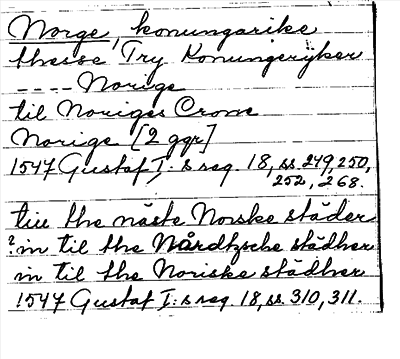 Norge, konungarike
thesse Try Konungerijker
---- Norige
til Noriges Crone
Norige [2 ggr]
1547 Gustaf I:s reg. 18, ss. 249, 250,
252, 268.
till the näste Norske städer
? in til the Nårdtzsche städher
in til the Noriske städher
1547 Gustaf I:s reg. 18, ss. 310, 311.